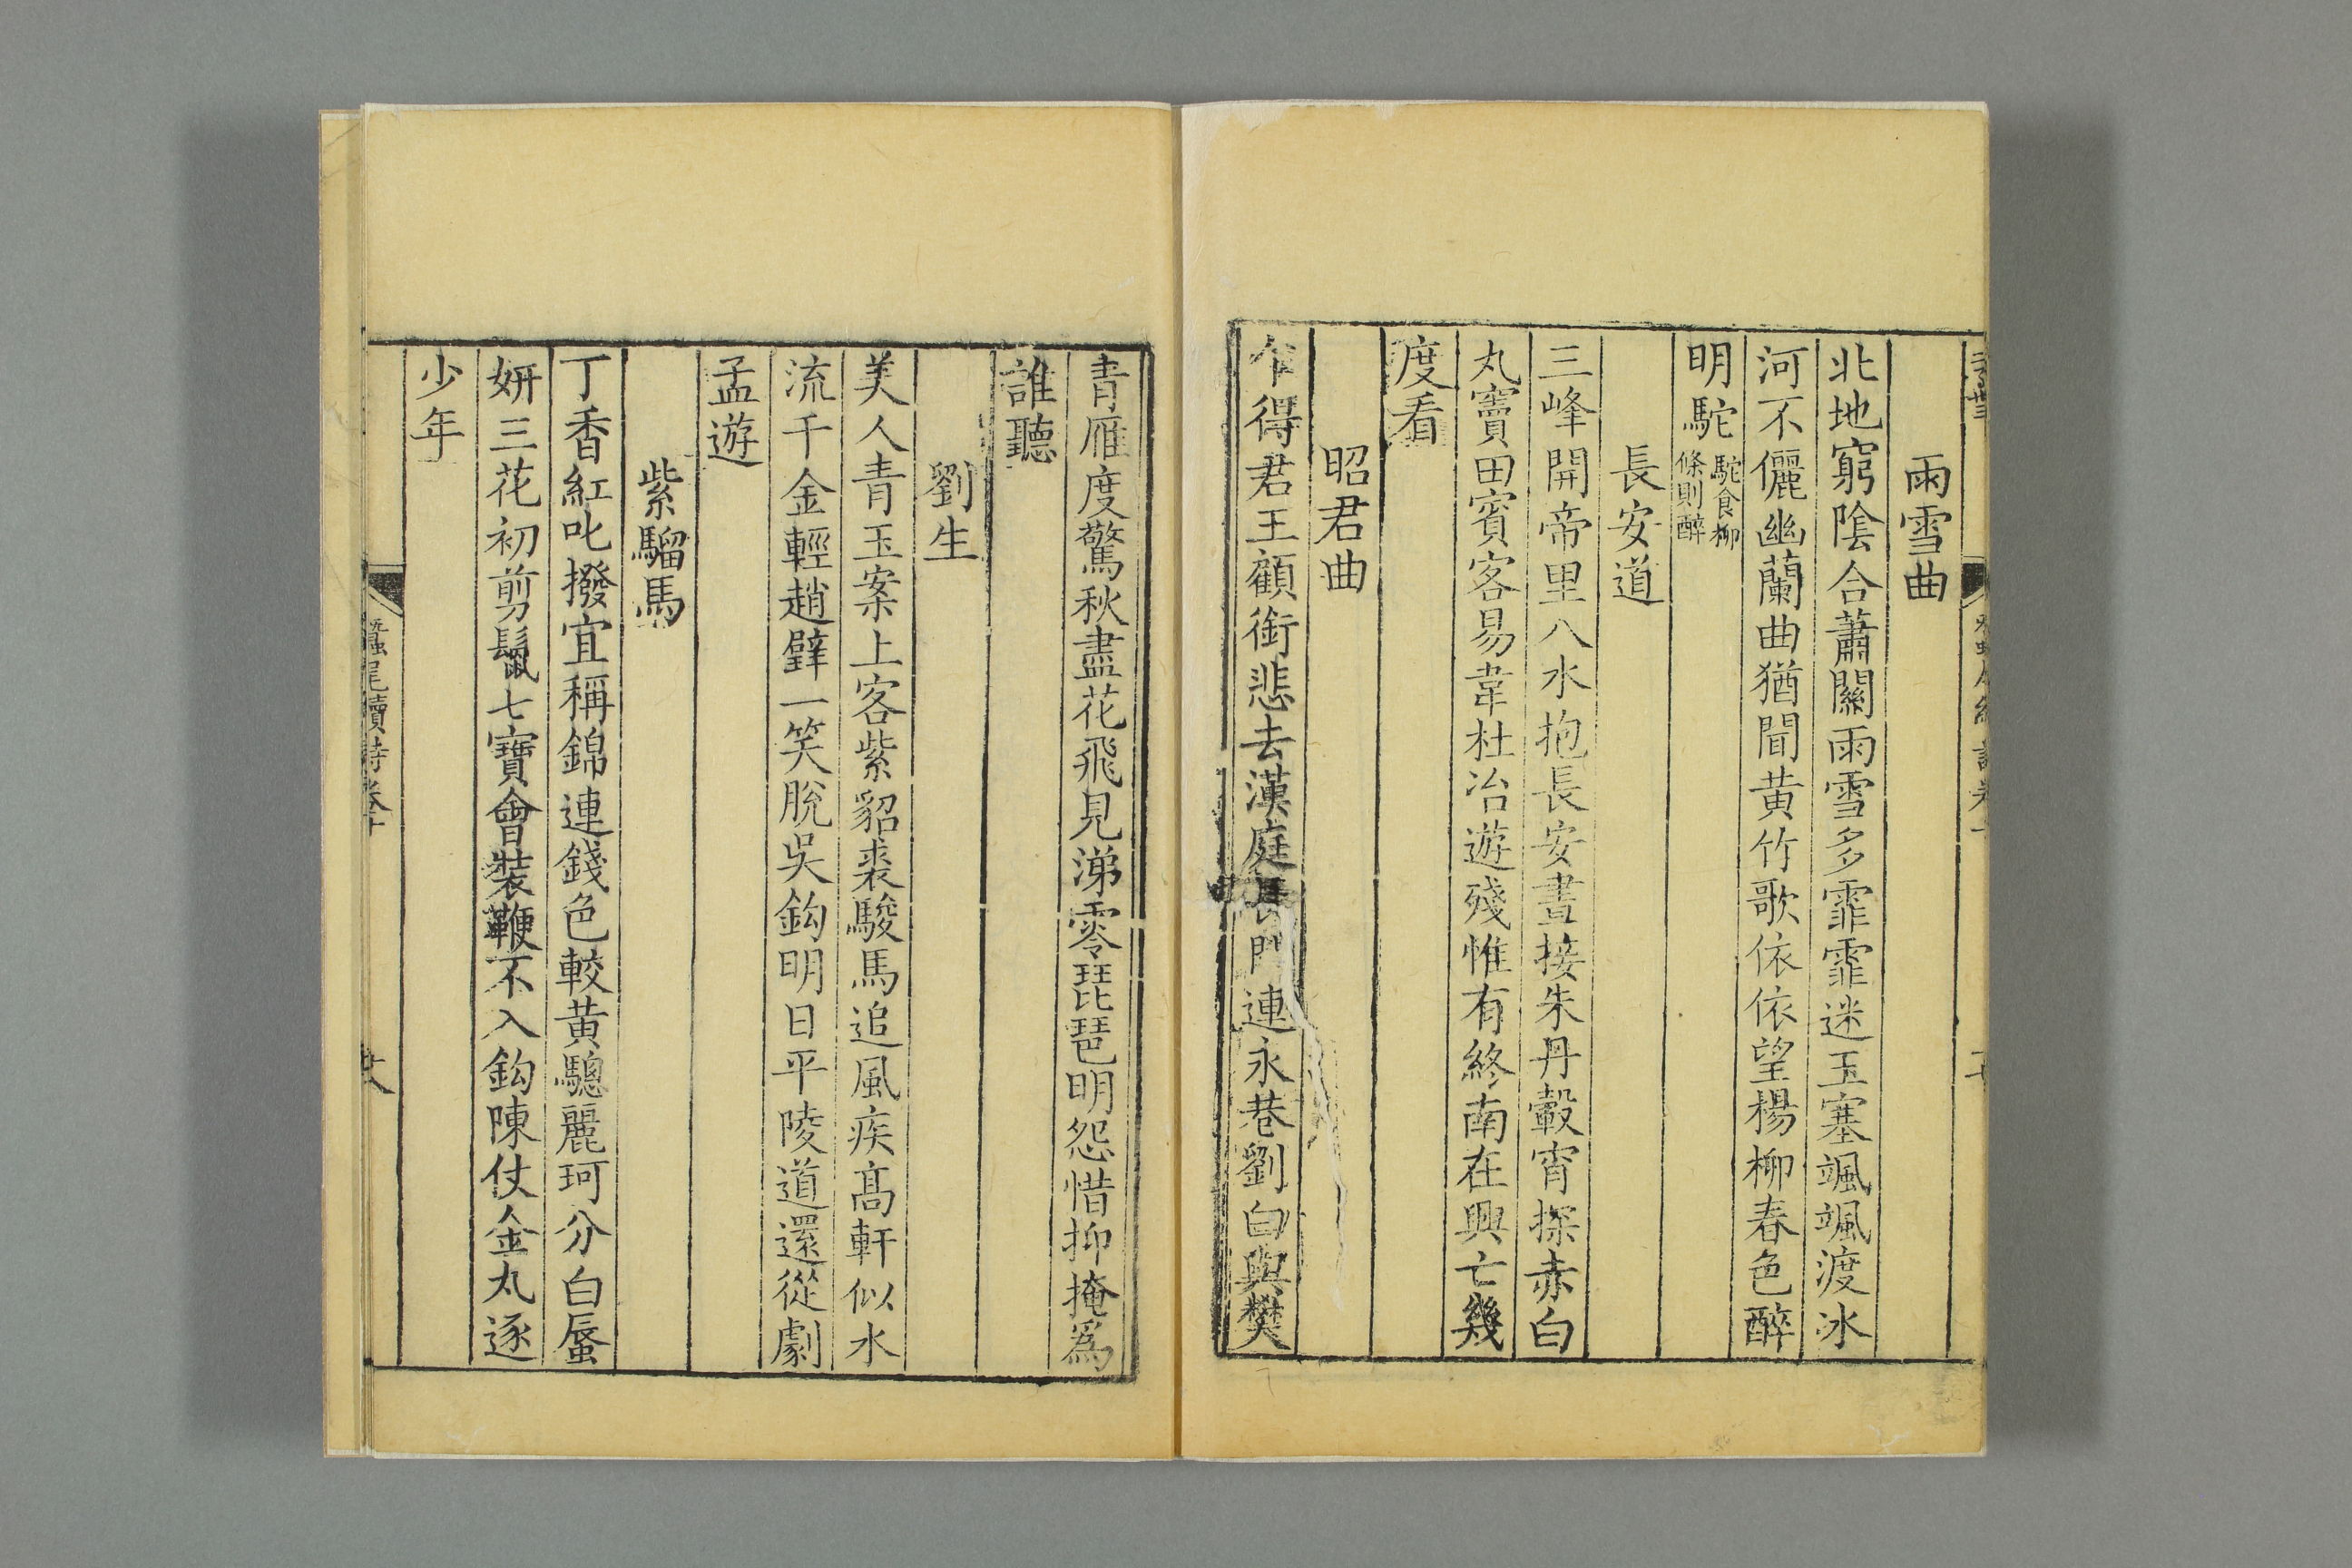 雨雪曲
北地窮陰合蕭關雨雪多霏霏迷玉塞颯颯渡冰
河不儷幽蘭曲猶聞黃竹歌依依望楊柳春色醉
明駝駝食柳條則醉
長安道
三峰開帝里八水抱長安晝接朱丹轂宵探赤白
丸竇田賓客易韋杜冶遊殘惟有終南在興亡幾
度看
昭君曲
乍得君王顧銜悲去漢庭長門連永巷劉白與樊
青雁度驚秋盡花飛見涕零琵琶明怨惜抑掩爲
誰聽
劉生
美人青玉案上客紫貂裘駿馬追風疾高軒似水
流千金輕趙璧一笑脫吳鈎明日平陵道還從劇
孟遊
紫騮馬
丁香紅叱撥宜稱錦連錢色較黃驄麗珂分白蜃
妍三花初剪鬣七寶會裝鞭不入鈎陳仗金丸逐
少年
蠶尾續詩卷十